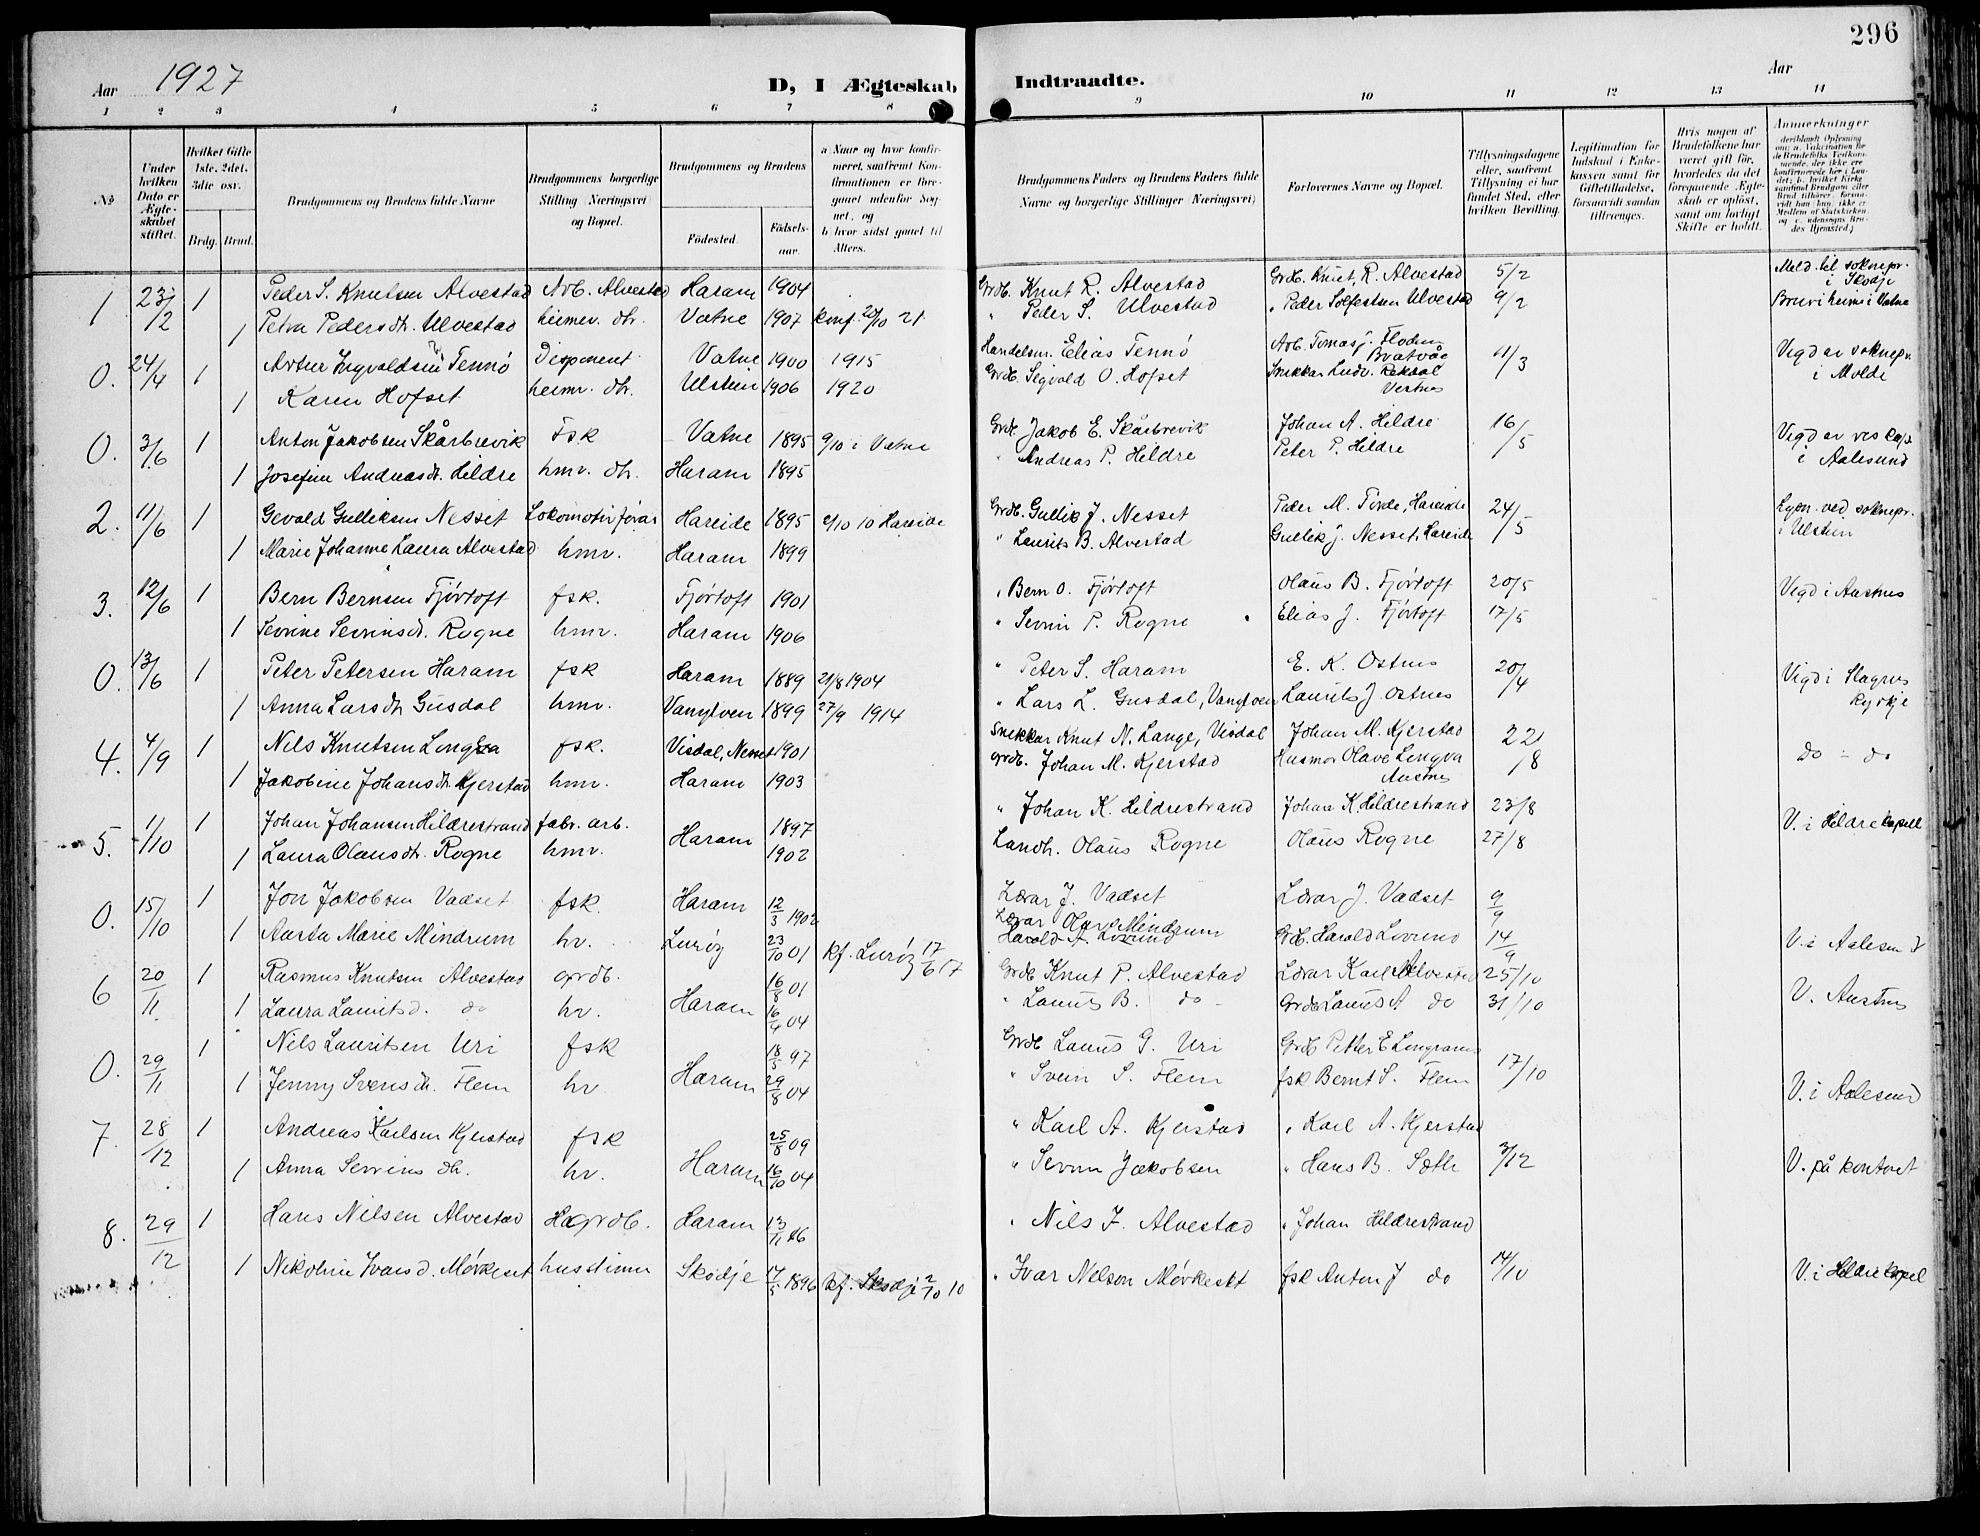 296
Aar 1927
D, I Ægteskab Indtraadte.
Aar
1 2 3 4 5 6 7 8 9 10 11 12 13 14
No
Under hvilken Dato er Ægteskabet stiftet.
Hvilket Gifte 1ste, 2det, 3die osv.
Brdg. Brud.
Brudgommens og Brudens fulde Navne
Brudgommens borgerlige Stilling Næringsvei og Bopæl.
Brudgommens og Brudens
Fødested. Fødselsaar.
a Naar og hvor konfirmeret, saafremt Konfirmationen er foregaaet udenfor Sognet, og
b hvor sidst gaaet til Alters.
Brudgommens Faders og Brudens Faders fulde Navne og borgerlige Stillinger Næringsvei
Forlovernes Navne og Bopæl.
Tillysningsdagene eller, saafremt Tillysning ei har fundet Sted, efter hvilken Bevilling.
Legitimation for Indskud i Enkekassen samt for Giftetilladelse, forsaavidt saadan tiltrænges.
Hvis nogen af Brudefolkene har været gift før, hvorledes da det foregaaende Ægteskab er opløst, samt om lovligt Skifte er holdt.
Anmerkninger
1 23/2 1 Peder S. Knutsen Alvestad Arb. Alvestad Haram 1904 Grdb. Knut R. Alvestad Grdb. Knut R. Alvestad 5/2 Meld. til soknepr. i Skodje
1 Petra Pedersdtr. Ulvestad heimev. dtr. Vatne 1907 konf. 20/10 21 " Peder S. Ulvestad " Peder Solfestsen Ulvestad 9/2 Brur i heim i Vatne
0. 24/4 1 Artur Ingvaldsen Tennø Disponent Vatne 1900 1915 Handelsm. Elias Tennø Arb. Tomas J. Floden Bratvåg 11/3 Vigd av soknepr. i Molde
1 Karen Hofset heimv. dtr. Ulstein 1906 1920 Grdb. Sigvald O. Hofset Snekkar Ludv. Rekdal Vestnes
0. 3/6 1 Anton Jakobsen Skårbrevik Fsk Vatne 1895 9/10 i Vatne Grdb. Jakob E. Skårbrevik Johan A. Hildre 16/5 Vigd av res kap. i Aalesund
1 Josefine Andreasdtr. Hildre hmv. dtr. Haram 1895 " Andreas P. Hildre Peter P. Hildre
2. 11/6 1 Gevald Gulliksen Nesset Lokomotivførar Hareide 1895 2/10 10 Hareide Grdb. Gullik J. Nesset Peder M. Tovde, Hareide 24/5 Lysn. ved soknepr. i Ulstein
1 Marie Johanne Laura Alvestad hmv. Haram 1899 " Laurits B. Alvestad Gullik J. Nesset, Hareide
3. 12/6 1 Bern Bernsen Fjørtoft fsk. Fjørtoft 1901 " Bern O. Fjørtoft Olaus B. Fjørtoft 20/5 Vigd i Austnes
1 Sevrine Sevrinsdt. Rogne hmv. Haram 1906 " Sevrin P. Rogne Elias J. Fjørtoft 17/5
0. 13/6 1 Peter Petersen Haram fsk Haram 1889 21/8 1904 " Peter S. Haram E. K. Ostnes 20/4 Vigd i Slagnes kyrkje
1 Anna Larsdtr Gusdal hmv. Vanylven 1899 27/9 1914 " Lars L. Gusdal, Vanylven Laurits J. Ostnes
4. 4/9 1 Nils Knutsen Lengva fsk. Visdal, Nesset 1901 Snekkar Knut N. Lange, Visdal Johan M. Kjerstad 22/8 do = do
1 Jakobine Johansdt. Kjerstad hmv. Haram 1903 grdb. Johan M. Kjerstad Husmor Olave Lengva Austnes
5. 1/10 1 Johan Johansen Hildrestrand fabr. arb. Haram 1897 " Johan K. Hildrestrand Johan K Hildrestrand 23/8 V. i Hildre kapell
1 Laura Olausdtr. Rogne hmv. 1902 Landh. Olaus Rogne Olaus Rogne 27/8
0. 15/10 1 Jon Jakobsen Vadset fsk. Haram 12/3 1902 Lærar J. Vadset Lærar J. Vadset 9/9
1 Aasta Marie Mindrum hv. Lurøy 23/10 01 kf. Lurøy 17/6 17 Lærar Olav Mindrum Harald A. Lovund Grdb. Harald Lovund 14/9 V. i Aalesund
6 20/11 1 Rasmus Knutsen Alvestad grdb. Haram 16/8 01 Grdb Knut P. Alvestad Lærar Karl Alvestad 25/10 V. Austnes
1 Laura Lauritsd. do hv. 16/4 04 " Laurits B. do - Grdb Laurits A do 31/10
0. 29/11 1 Nils Lauritsen Uri fsk Haram 18/5 97 Grdb Laurits G. Uri Grdb Petter E Longvanes 17/10 V. i Aalesund
1 Jenny Sveinsdt. Flem hv 29/8 04 " Svein S. Flem fsk Bernt S. Flem
7. 28/12 1 Andreas Karlsen Kjerstad fsk Haram 25/8 09 " Karl A. Kjerstad " Karl A. Kjerstad 3/12 V. på kontoret
1 Anna Sevrins dtr. hv. 16/10 04 " Sevrin Jakobsen " Hans B. Sæth
8. 29/12 1 Hans Nilsen Alvestad grdb. Haram 13/11 86 " Nils F. Alvestad " Johan Hildrestrand 14/10 V. i Hildre kapel
1 Nikoline Ivarsd. Mørkeset hustimer Skodje 17/5 1896 kf. Skodje 2/10 10 " Ivar Nelson Mørkeset fsk Anton J do